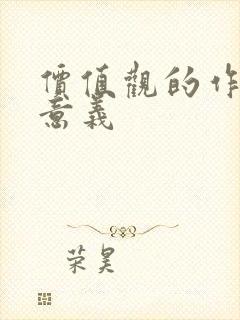 價值觀的作
意義
荣昊